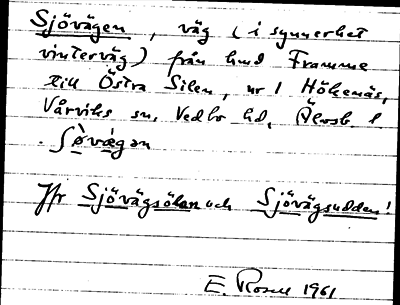 Sjövägen, väg (i synnerhet
vinterväg) från hmd Framme
till Östra Silen, nr 1 Hökenäs,
Vårviks sn, Vedbo hd, Älvsb. l
Jfr Sjövägsölan och Sjövägsudden!
E. Rosell 1961